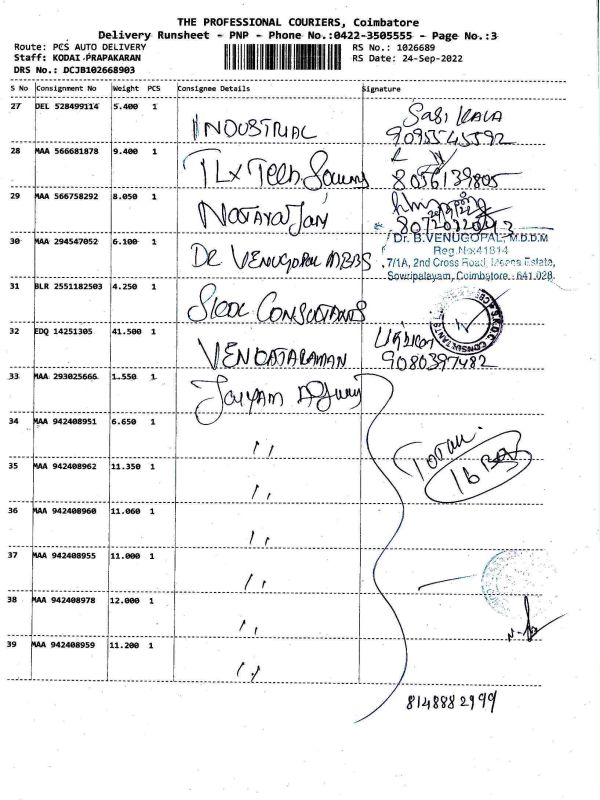 THE PROFESSIONAL COURIERS, Coimbatore
Delivery Runsheet - PNP - Phone No.:0422-3505555 - Page No.:3
Route: PCS AUTO DELIVERY RS No.: 1026689
Staff: KODAI PRAPAKARAN RS Date: 24-Sep-2022
DRS No.: DCJB102668903
S No Consignment No Weight PCS Consignee Details Signature
27 DEL 528499114 5.400 1 INDUSTRIAL SASI KALA
9095545592
28 MAA 566681878 9.400 1 TLX Tech 8056139805
29 MAA 566758292 8.050 1
30 MAA 294547052 6.100 1 DR VENUGOPAL MBBS Dr. B.VENUGOPAL, M.D.D.M
Reg.No:41814
7/1A, 2nd Cross Road, Meena Estate,
Sowripalayam, Coimbatore - 641 028.
31 BLR 2551182503 4.250 1 SRDC CONSULTANTS S.R.D.C. CONSULTANTS CBE
32 EDQ 14251305 41.500 1 VENCATARAMAN 9080397482
33 MAA 293025666 1.550 1
34 MAA 942408951 6.650 1 ,, TOTAL
16
35 MAA 942408962 11.350 1 ,,
36 MAA 942408960 11.060 1 ,,
37 MAA 942408955 11.000 1 ,,
38 MAA 942408978 12.000 1 ,,
39 MAA 942408959 11.200 1 ,,
8148882999